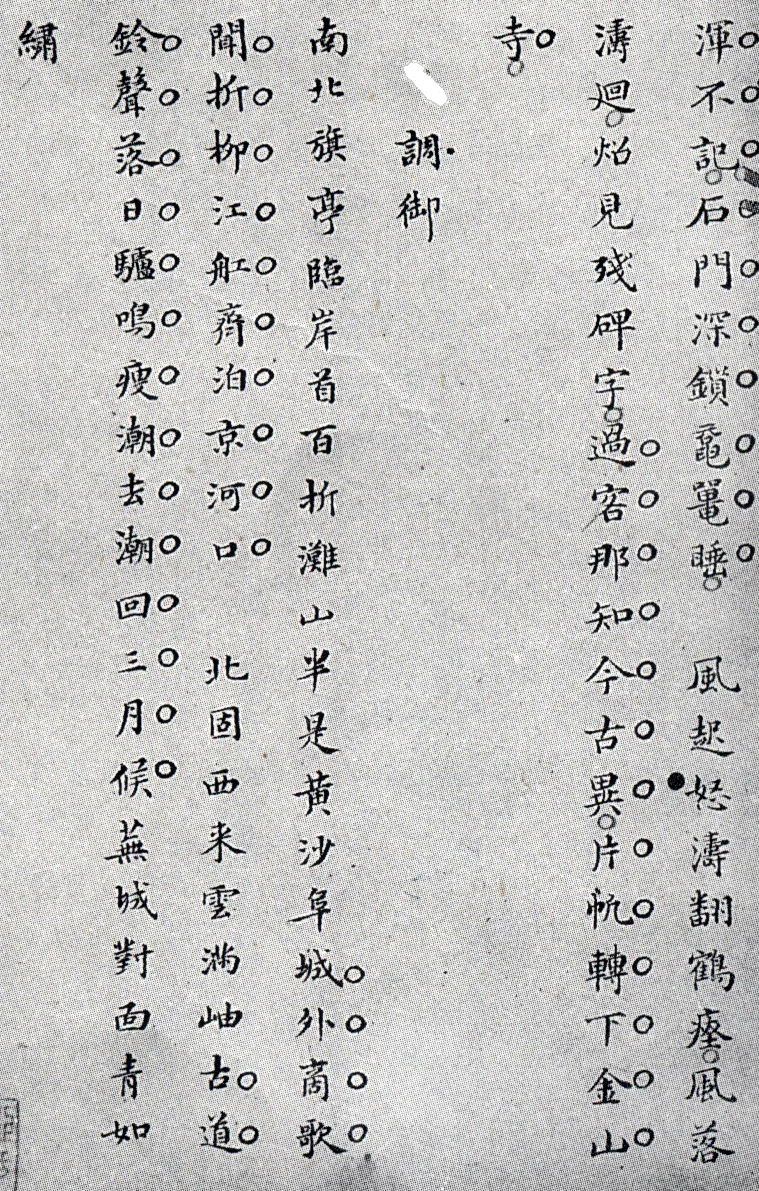 渾不記石門深鎖黿鼉睡　風起怒濤翻鶴瘞風落
濤迴炲見殘碑字過客那知今古異片帆轉下金山
寺
調御
南北旗亭臨岸首百折灘山半是黃沙阜城外商歌
聞折柳江舡齊泊京河口　北固西来雲滿岫古道
鈴聲落日驢鳴瘦潮去潮回三月候蕪城對面青如
繡